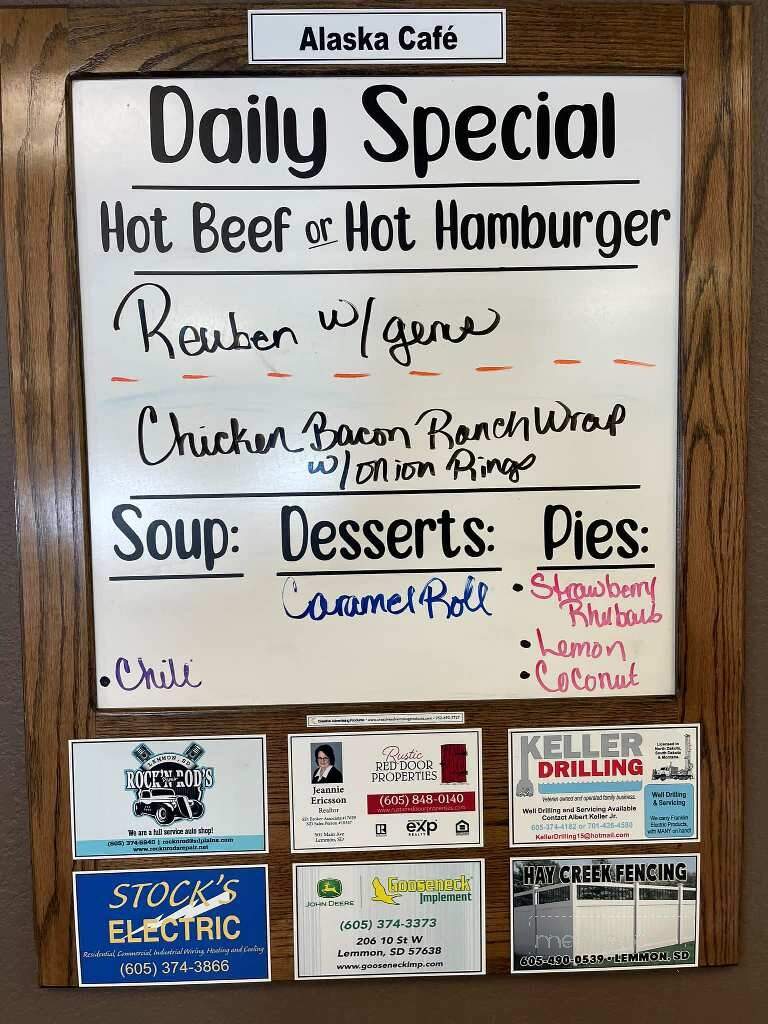 Alaska Café
Daily Special
Hot Beef or Hot Hamburger
Reuben w/ gems
Chicken Bacon Ranch Wrap
w/ onion Rings
Soup:
• Chili
Desserts:
Caramel Roll
Pies:
• Strawberry
Rhubarb
• Lemon
• Coconut
LEMMON, SD
ROCK'N ROD'S
We are a full service auto shop!
(605) 374-5940
Jeannie
Ericsson
Realtor
Lemmon, SD
Rustic
RED DOOR
PROPERTIES
(605) 848-0140
exp
REALTY
KELLER
DRILLING
Licensed in
North Dakota,
South Dakota
& Montana
Veteran owned and operated family business.
Well Drilling and Servicing Available
Contact Albert Keller Jr.
605-374-4182 or 701-426-4580
KellerDrilling15@hotmail.com
Well Drilling
& Servicing
We carry Franklin
Electric Products,
with MANY on hand!
STOCK'S
ELECTRIC
Residential, Commercial, Industrial Wiring, Heating and Cooling
(605) 374-3866
JOHN DEERE
Gooseneck
Implement
(605) 374-3373
206 10 St W
Lemmon, SD 57638
www.gooseneckimp.com
HAY CREEK FENCING
605-490-0539 • LEMMON, SD